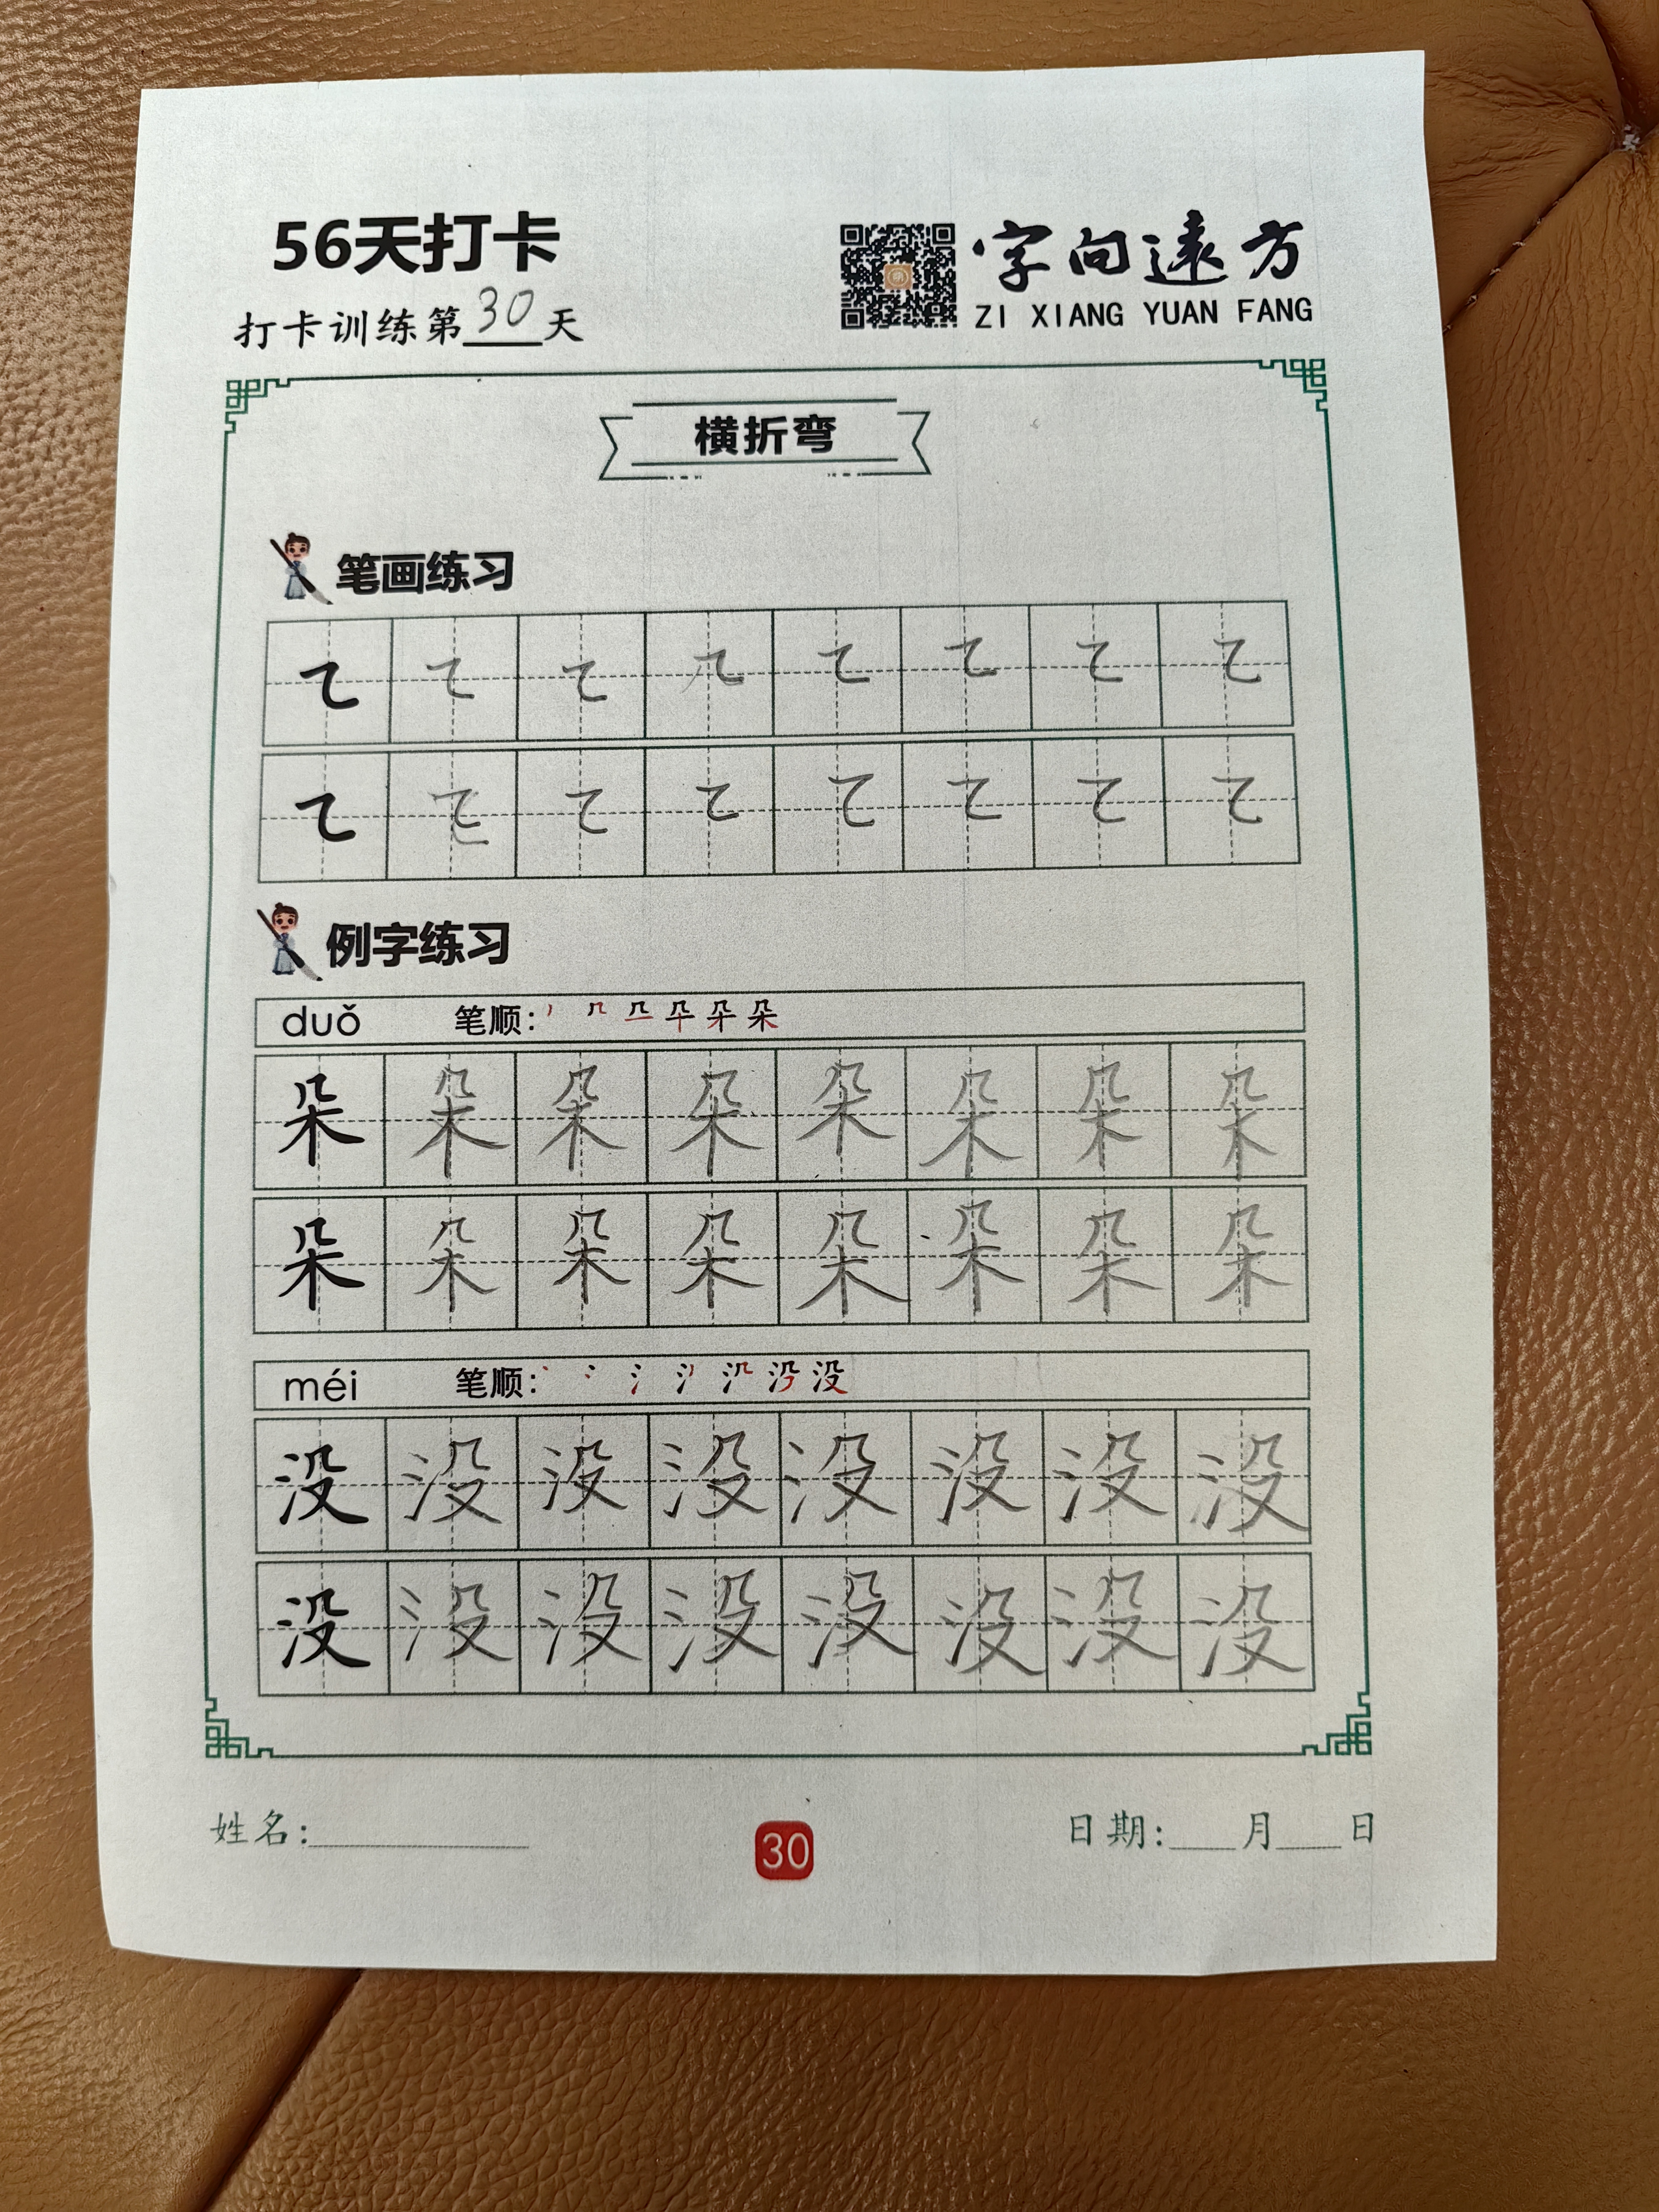 56天打卡
字向远方
打卡训练第30天
ZI XIANG YUAN FANG
横折弯
笔画练习
㇍ ㇍ ㇍ ㇍ ㇍ ㇍ ㇍ ㇍
㇍ ㇍ ㇍ ㇍ ㇍ ㇍ ㇍ ㇍
例字练习
duǒ 笔顺:
朵 朵 朵 朵 朵 朵 朵 朵
朵 朵 朵 朵 朵 朵 朵 朵
méi 笔顺:
没 没 没 没 没 没 没 没
没 没 没 没 没 没 没 没
姓名:
30
日期: 月 日